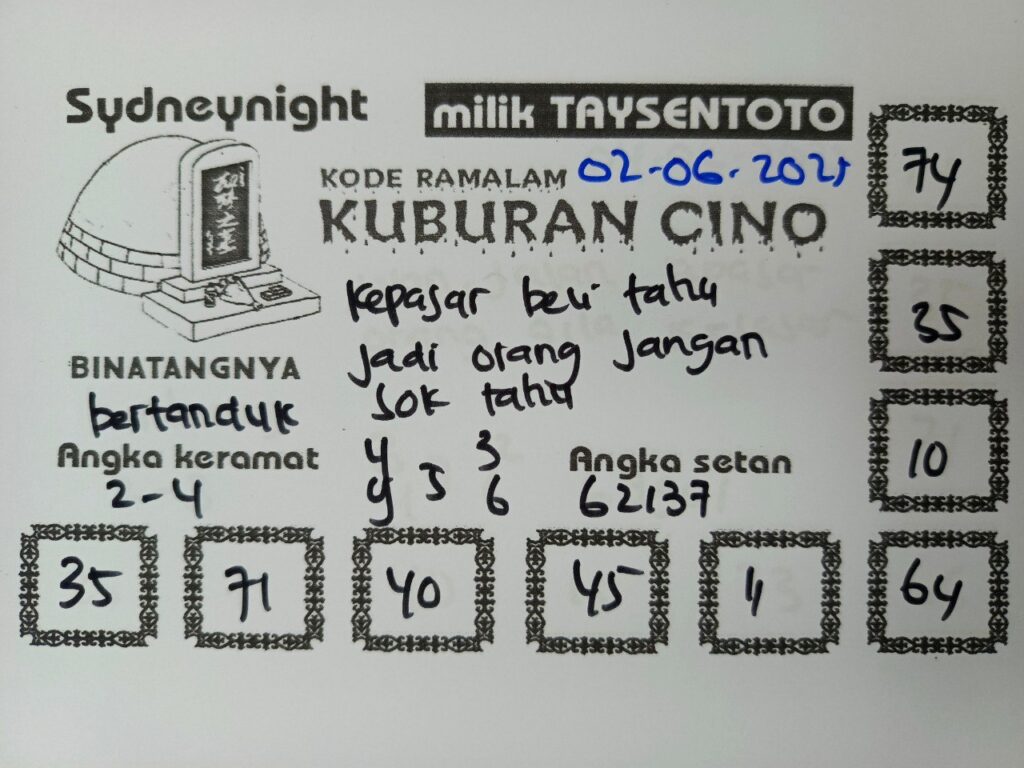 Sydneynight
milik TAYSENTOTO
KODE RAMALAM 02-06-2025
KUBURAN CINO
kepasar beli tahu
jadi orang jangan
sok tahu
BINATANGNYA
bertanduk
Angka keramat
2-4
4 3
5
9 6
Angka setan
62137
74
35
10
35 71 40 45 11 64